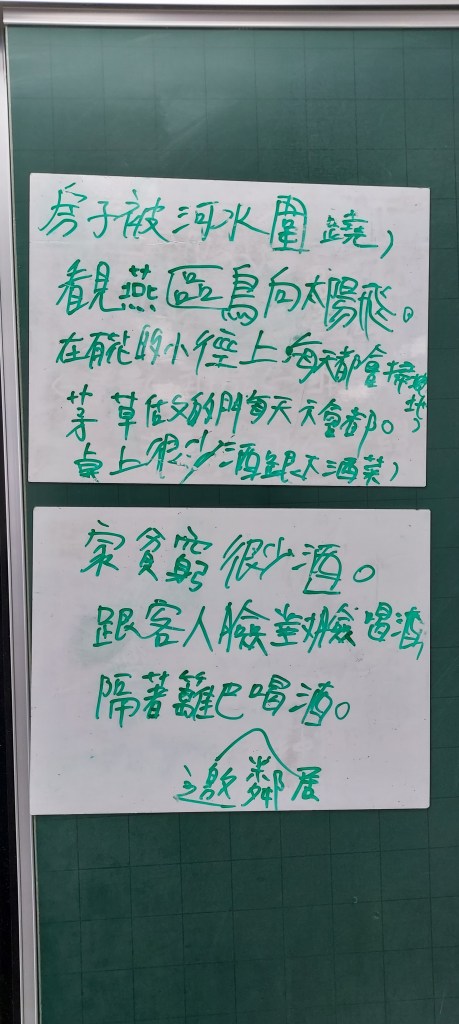 房子被河水圍蹺,
看見燕區鳥向太陽飛。
在有花的小徑上每天都會掃地,
茅草做的門每天
桌上很少酒跟下酒菜,
家貧窮很少酒。
跟客人臉對臉喝酒,
隔著籬巴喝酒。
邀鄰居